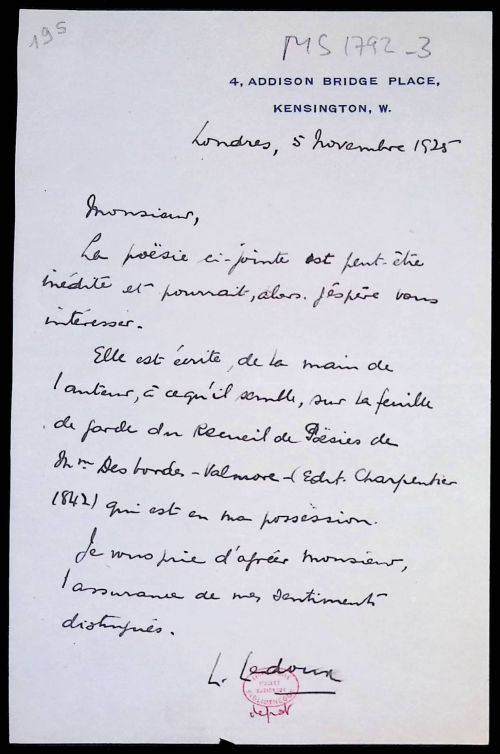 195
MS 1792-3
4, ADDISON BRIDGE PLACE,
KENSINGTON, W.
Londres, 5 Novembre 1925
Monsieur,
La poësie ci-jointe est peut-être
inédite et pourrait, alors, j'éspère vous
intéresser.
Elle est écrite, de la main de
l'auteur, à ce qu'il semble, sur la feuille
de garde du Recueil de Poësies de
Mme Desbordes-Valmore - (Edit. Charpentier
1842) qui est en ma possession.
Je vous prie d'agréer Monsieur,
l'assurance de mes sentiments
distingués.
L. Ledoux
BIBLIOTHÈQUE
depot